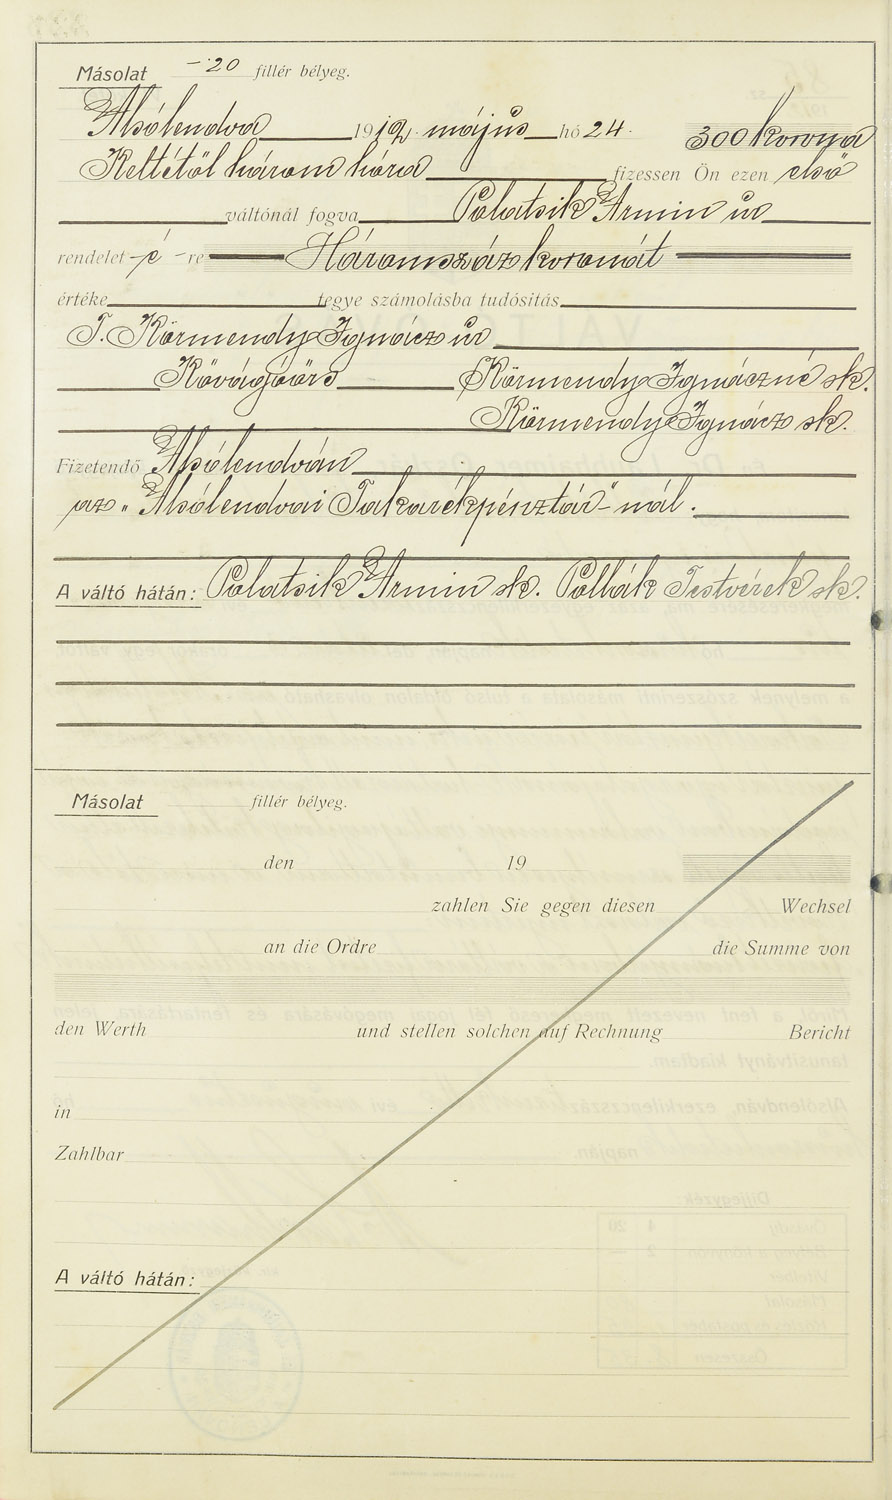 Másolat -·20 fillér bélyeg.
Alsólendva 1912. május hó 24. 300 korona
Kelttétől három hóra fizessen Ön ezen első
váltónál fogva Palatsik Ármin úr
rendelet -é -re Háromszáz koronát
értéke tegye számolásba tudósítás
T. Körmendy Ignácz úr
Kővágóörs Körmendy Ignáczné sk.
Körmendy Ignácz sk.
Fizetendő Alsólendván
az „Alsólendvai Takarékpénztár"-nál.
A váltó hátán: Palatsik Ármin sk. Pollák Testvérek sk.
Másolat fillér bélyeg.
den 19
zahlen Sie gegen diesen Wechsel
an die Ordre die Summe von
den Werth und stellen solchen auf Rechnung Bericht
in
Zahlbar
A váltó hátán: